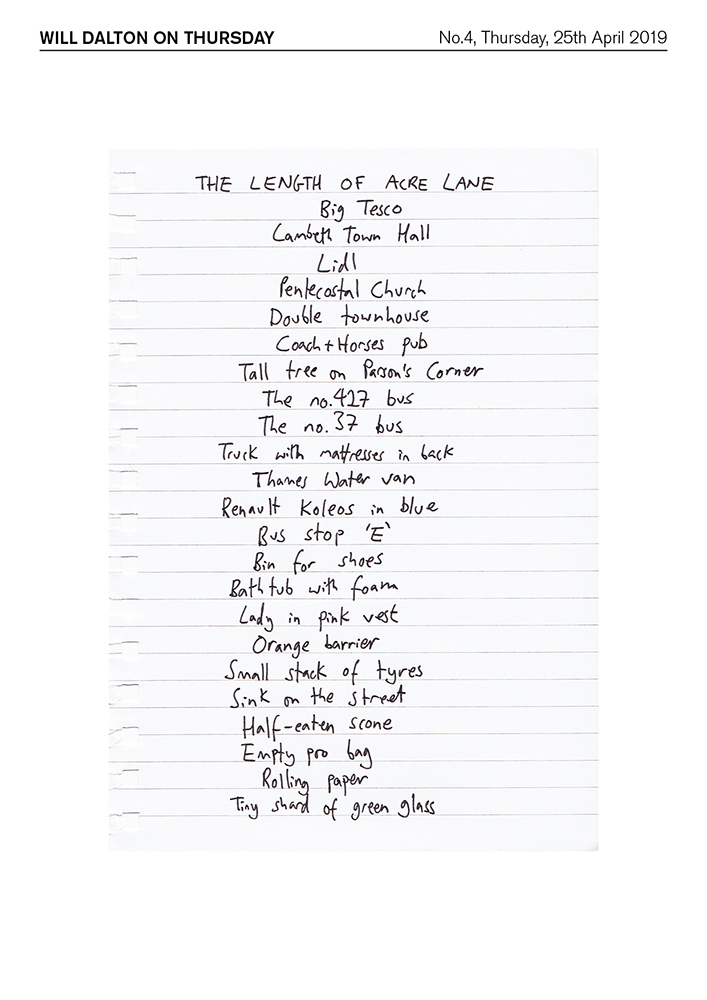 WILL DALTON ON THURSDAY
No.4, Thursday, 25th April 2019
THE LENGTH OF ACRE LANE
Big Tesco
Lambeth Town Hall
Lidl
Pentecostal Church
Double townhouse
Coach+Horses pub
Tall tree on Parson's Corner
The no.427 bus
The no.37 bus
Truck with mattresses in back
Thames Water van
Renault Koleos in blue
Bus stop 'E'
Bin for shoes
Bath tub with foam
Lady in pink vest
Orange barrier
Small stack of tyres
Sink on the street
Half-eaten scone
Empty pro bag
Rolling paper
Tiny shard of green glass